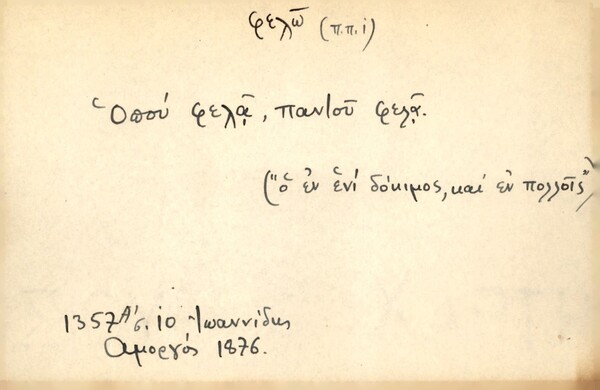 φελῶ (π.π.ι)
Ὁπού φελᾷ, παντοῦ φελᾷ.
("ὁ ἐν ἑνί δόκιμος, καί ἐν πολλοῖς")
1357 Α' σ. 10 Ἰωαννίδης
Αμοργός 1876.